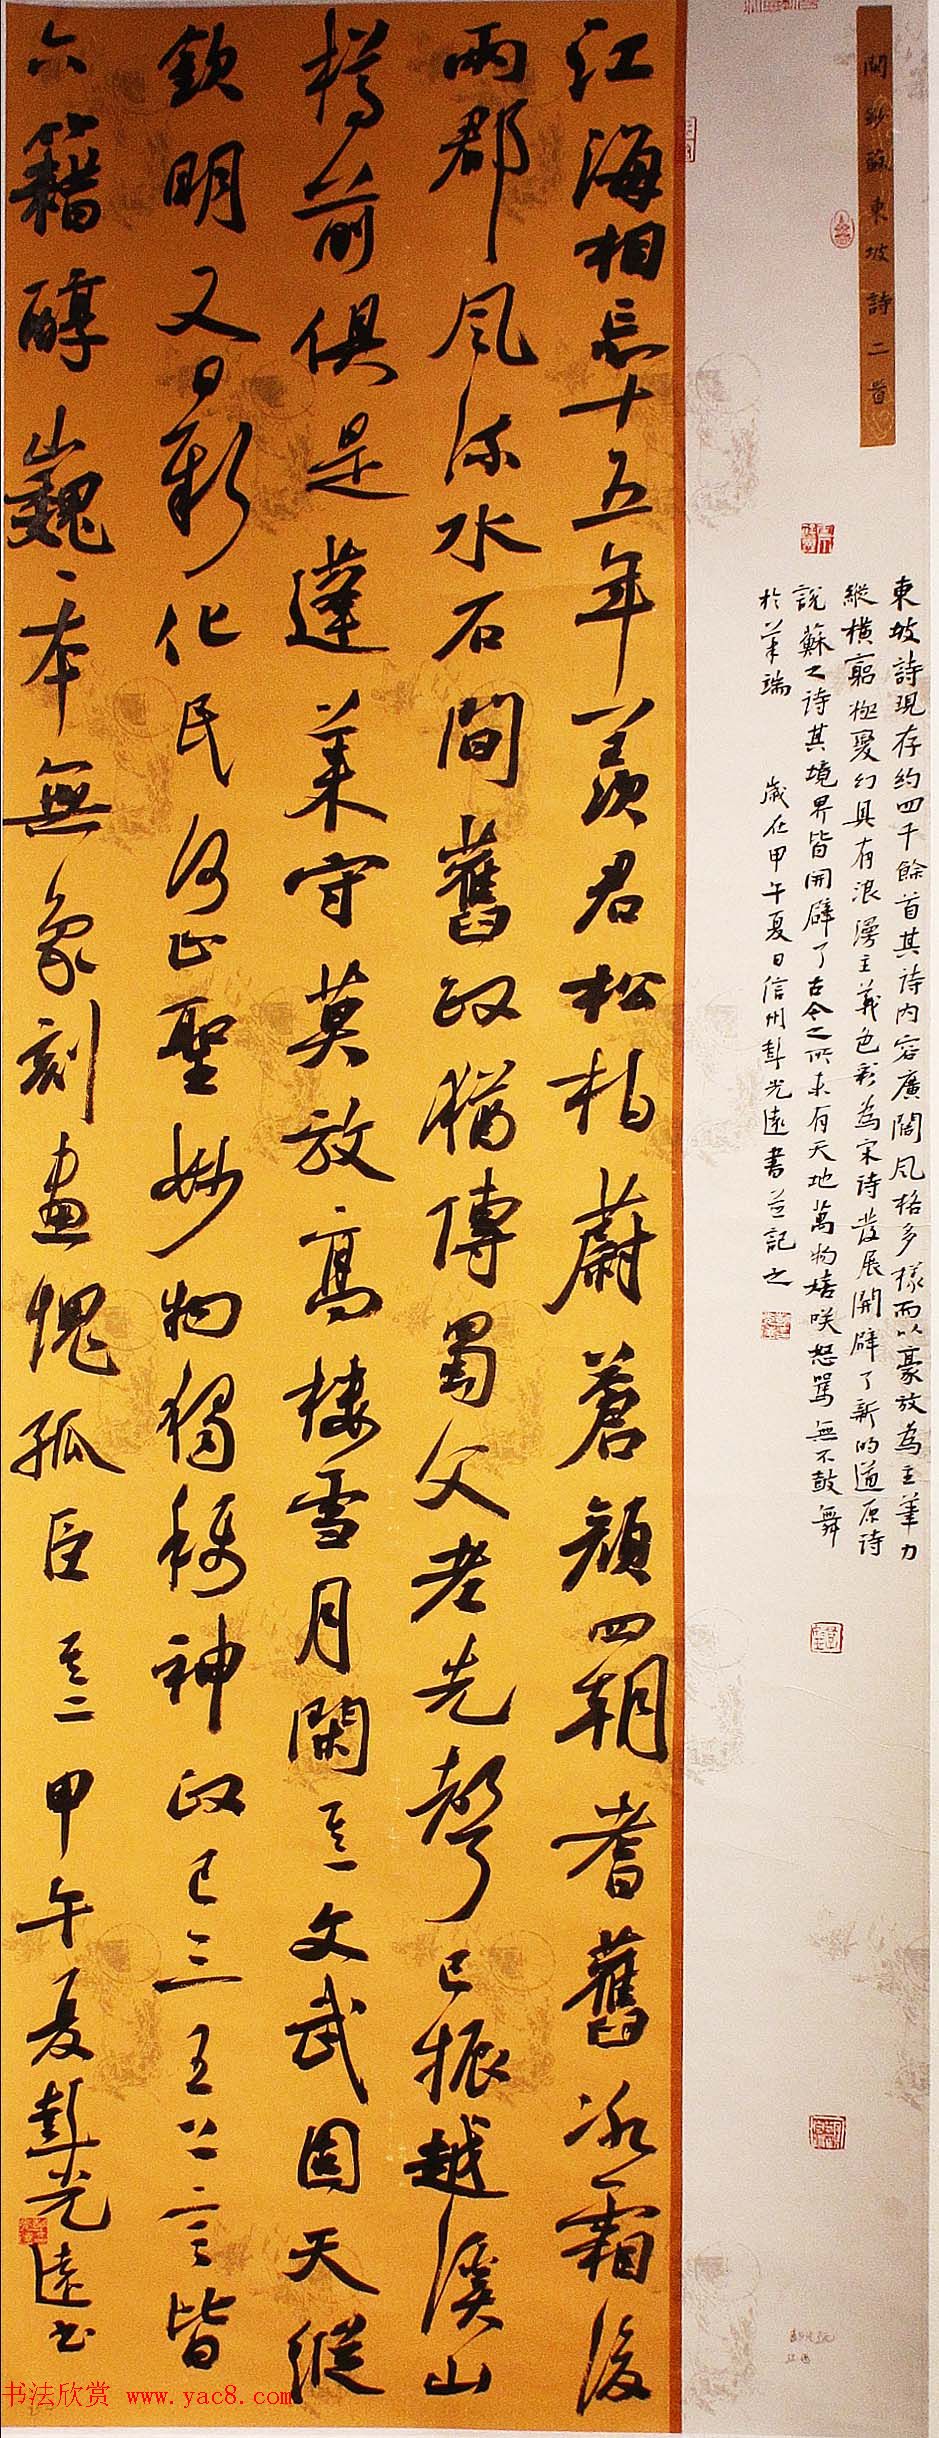 閒鈔蘇東坡詩二首
東坡詩現存約四千餘首其詩内容廣闊風格多樣而以豪放為主筆力
縱橫窮極變幻具有浪漫主義色彩為宋詩發展開辟了新的道原詩
說蘇之詩其境界皆開辟了古今之所未有天地萬物嬉笑怒罵無不鼓舞
於筆端 歲在甲午夏日信州彭光遠書並記之
江海相忘十五年羨君松柏蔚蒼顏四朝耆舊冰霜後
兩郡風流水石間舊政猶傳蜀父老先聲已振越溪山
樽前俱是蓬萊守莫放高樓雪月閑其一文武固天縱
欽明又日新化民何止聖妙物獨稱神政已三王上言皆
六籍醇巍巍本無象刻畫愧孤臣其二甲午夏彭光遠書
书法欣赏 www.yac8.com